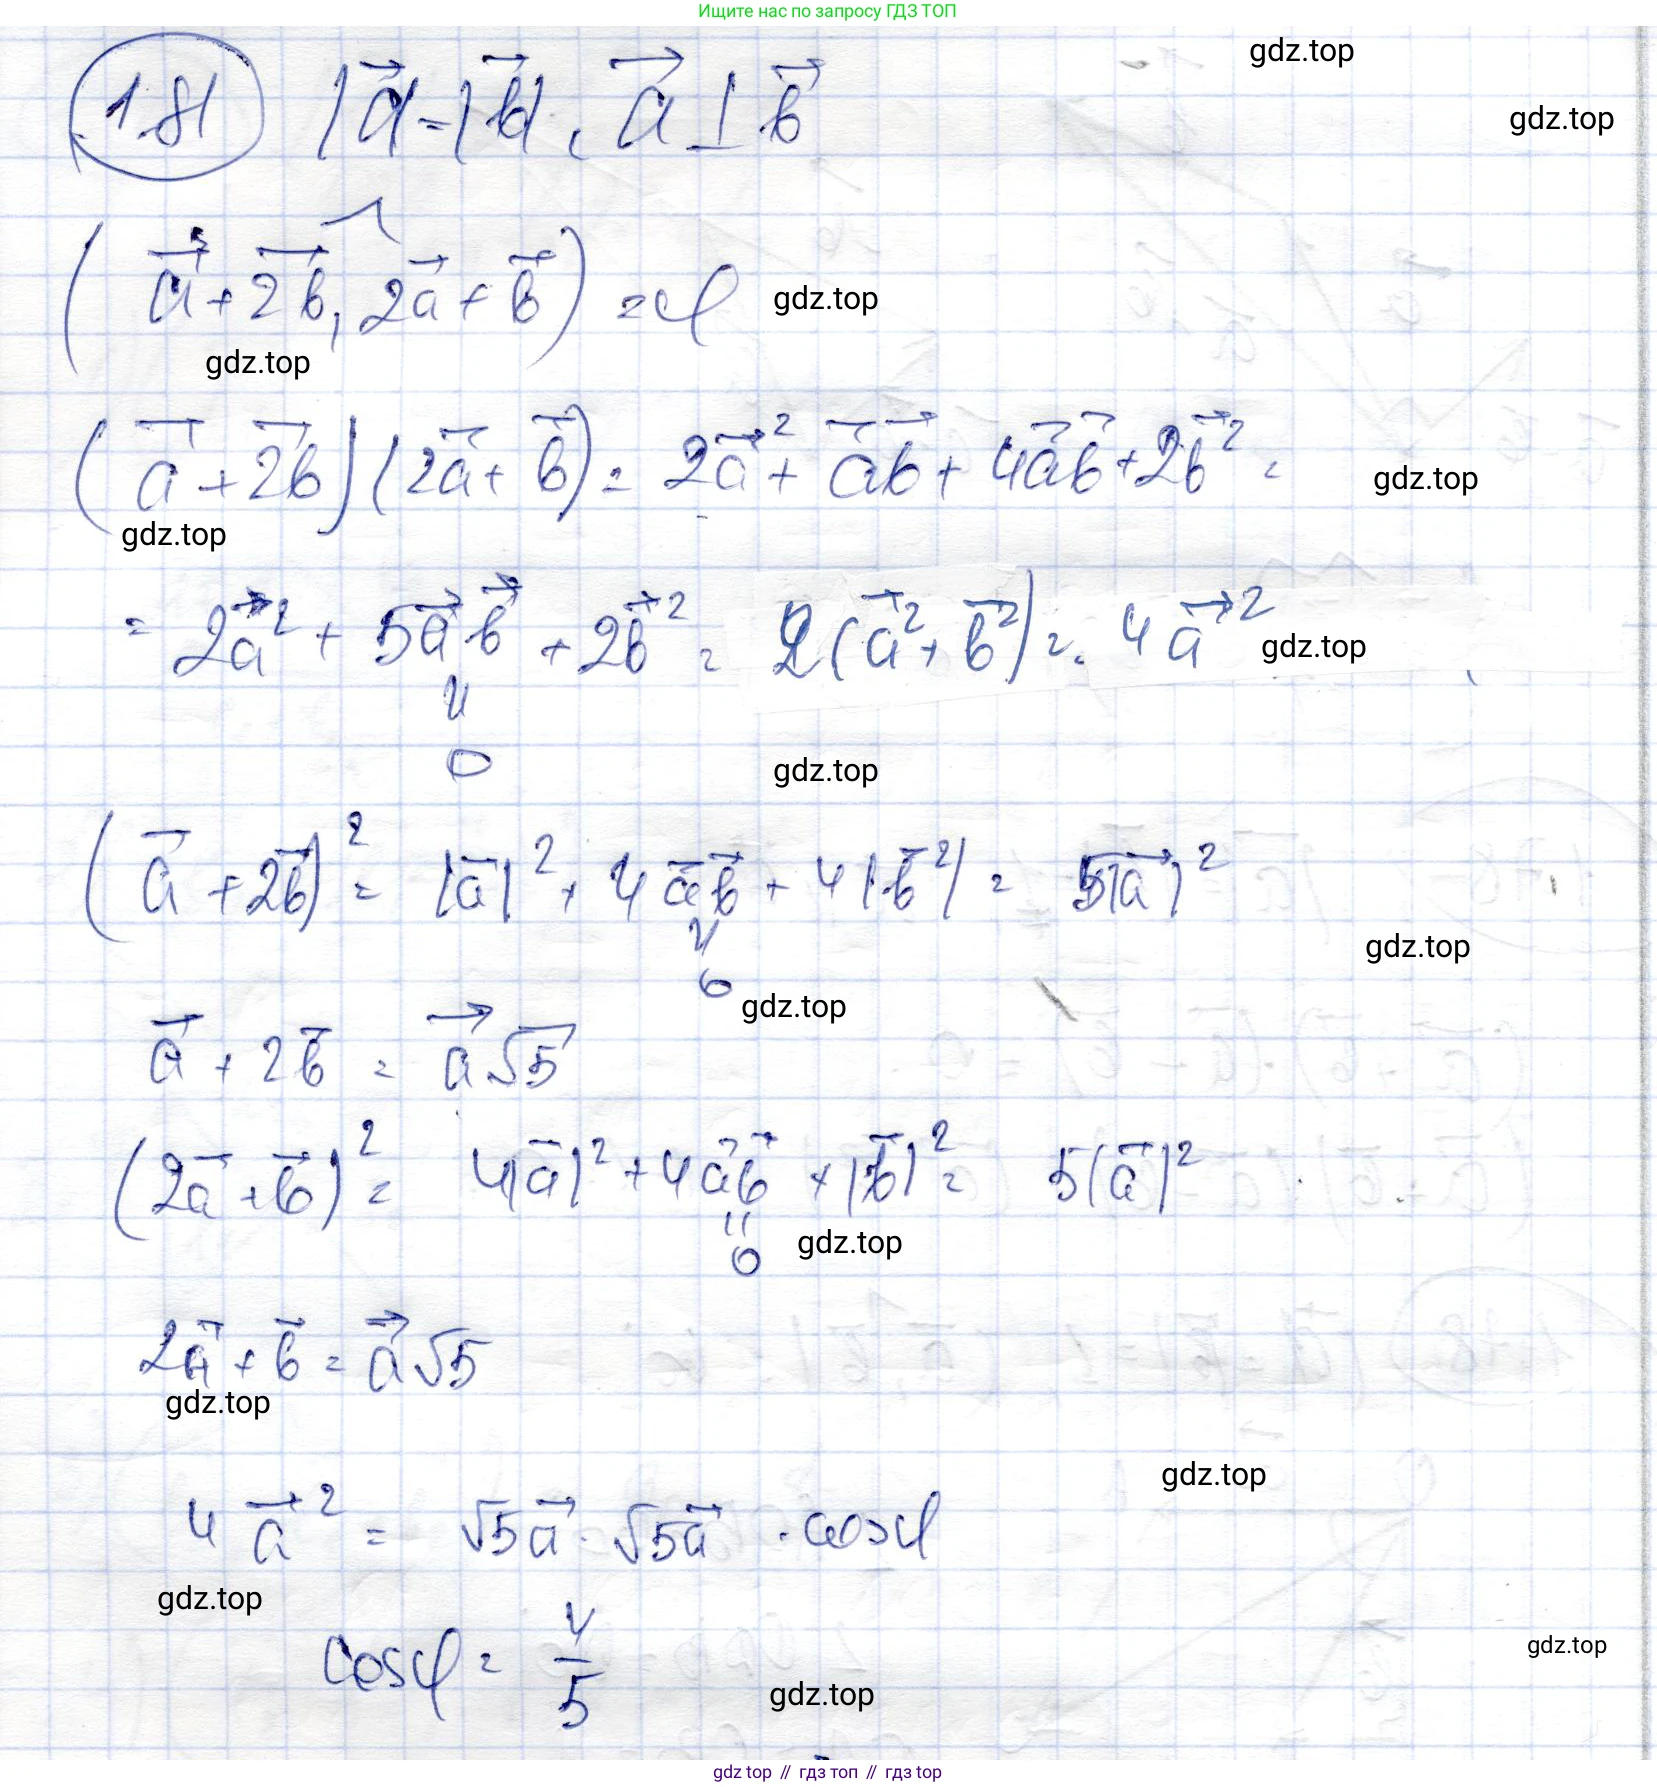 Ищите нас по запросу ГДЗ ТОП
gdz.top
1.81 |a⃗| = |b⃗|, a⃗ ⊥ b⃗
gdz.top
(a⃗ + 2b⃗, 2a⃗ + b⃗) = φ
gdz.top
gdz.top
(a⃗ + 2b⃗)(2a⃗ + b⃗) = 2a⃗² + a⃗b⃗ + 4a⃗b⃗ + 2b⃗² =
gdz.top
gdz.top
= 2a⃗² + 5a⃗b⃗ + 2b⃗² = 2(a⃗² + b⃗²) = 4a⃗²
gdz.top
॥
0
gdz.top
(a⃗ + 2b⃗)² = |a⃗|² + 4a⃗b⃗ + 4|b⃗²| = 5|a⃗|²
॥
0
gdz.top
gdz.top
a⃗ + 2b⃗ = a⃗√5
(2a⃗ + b⃗)² = 4|a⃗|² + 4a⃗b⃗ + |b⃗|² = 5|a⃗|²
॥
0
gdz.top
2a⃗ + b⃗ = a⃗√5
gdz.top
gdz.top
4a⃗² = √5a⃗ · √5a⃗ · cosφ
gdz.top
cosφ = 4/5
gdz.top
gdz.top
gdz top // гдз топ // гдз top